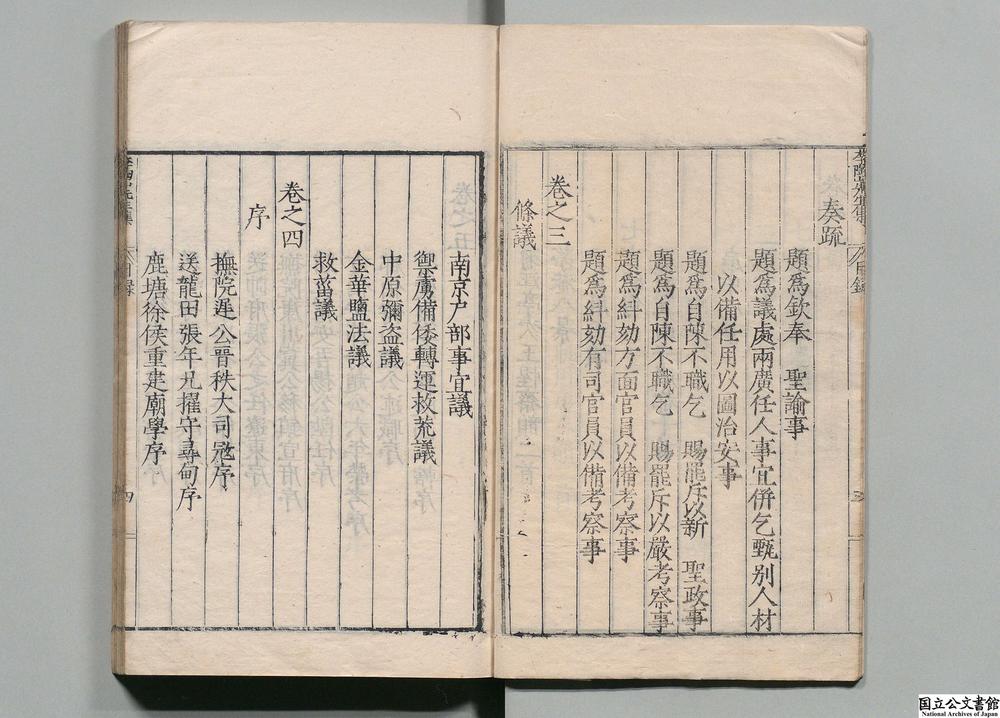 奏疏
題為欽奉　聖諭事
題為議處兩廣任人事宜併乞甄別人材
以備任用以圖治安事
題為自陳不職乞　賜罷斥以新　聖政事
題為自陳不職乞　賜罷斥以嚴考察事
題為糾劾方面官員以備考察事
題為糾劾有司官員以備考察事
卷之三
條議
南京户部事宜議
禦虜備倭轉運救荒議
中原彌盗議
金華鹽法議
救菑議
卷之四
序
撫院遲公晉秩大司寇序
送龍田張年兄擢守尋甸序
鹿塘徐侯重建廟學序
四
国立公文書館
National Archives of Japan